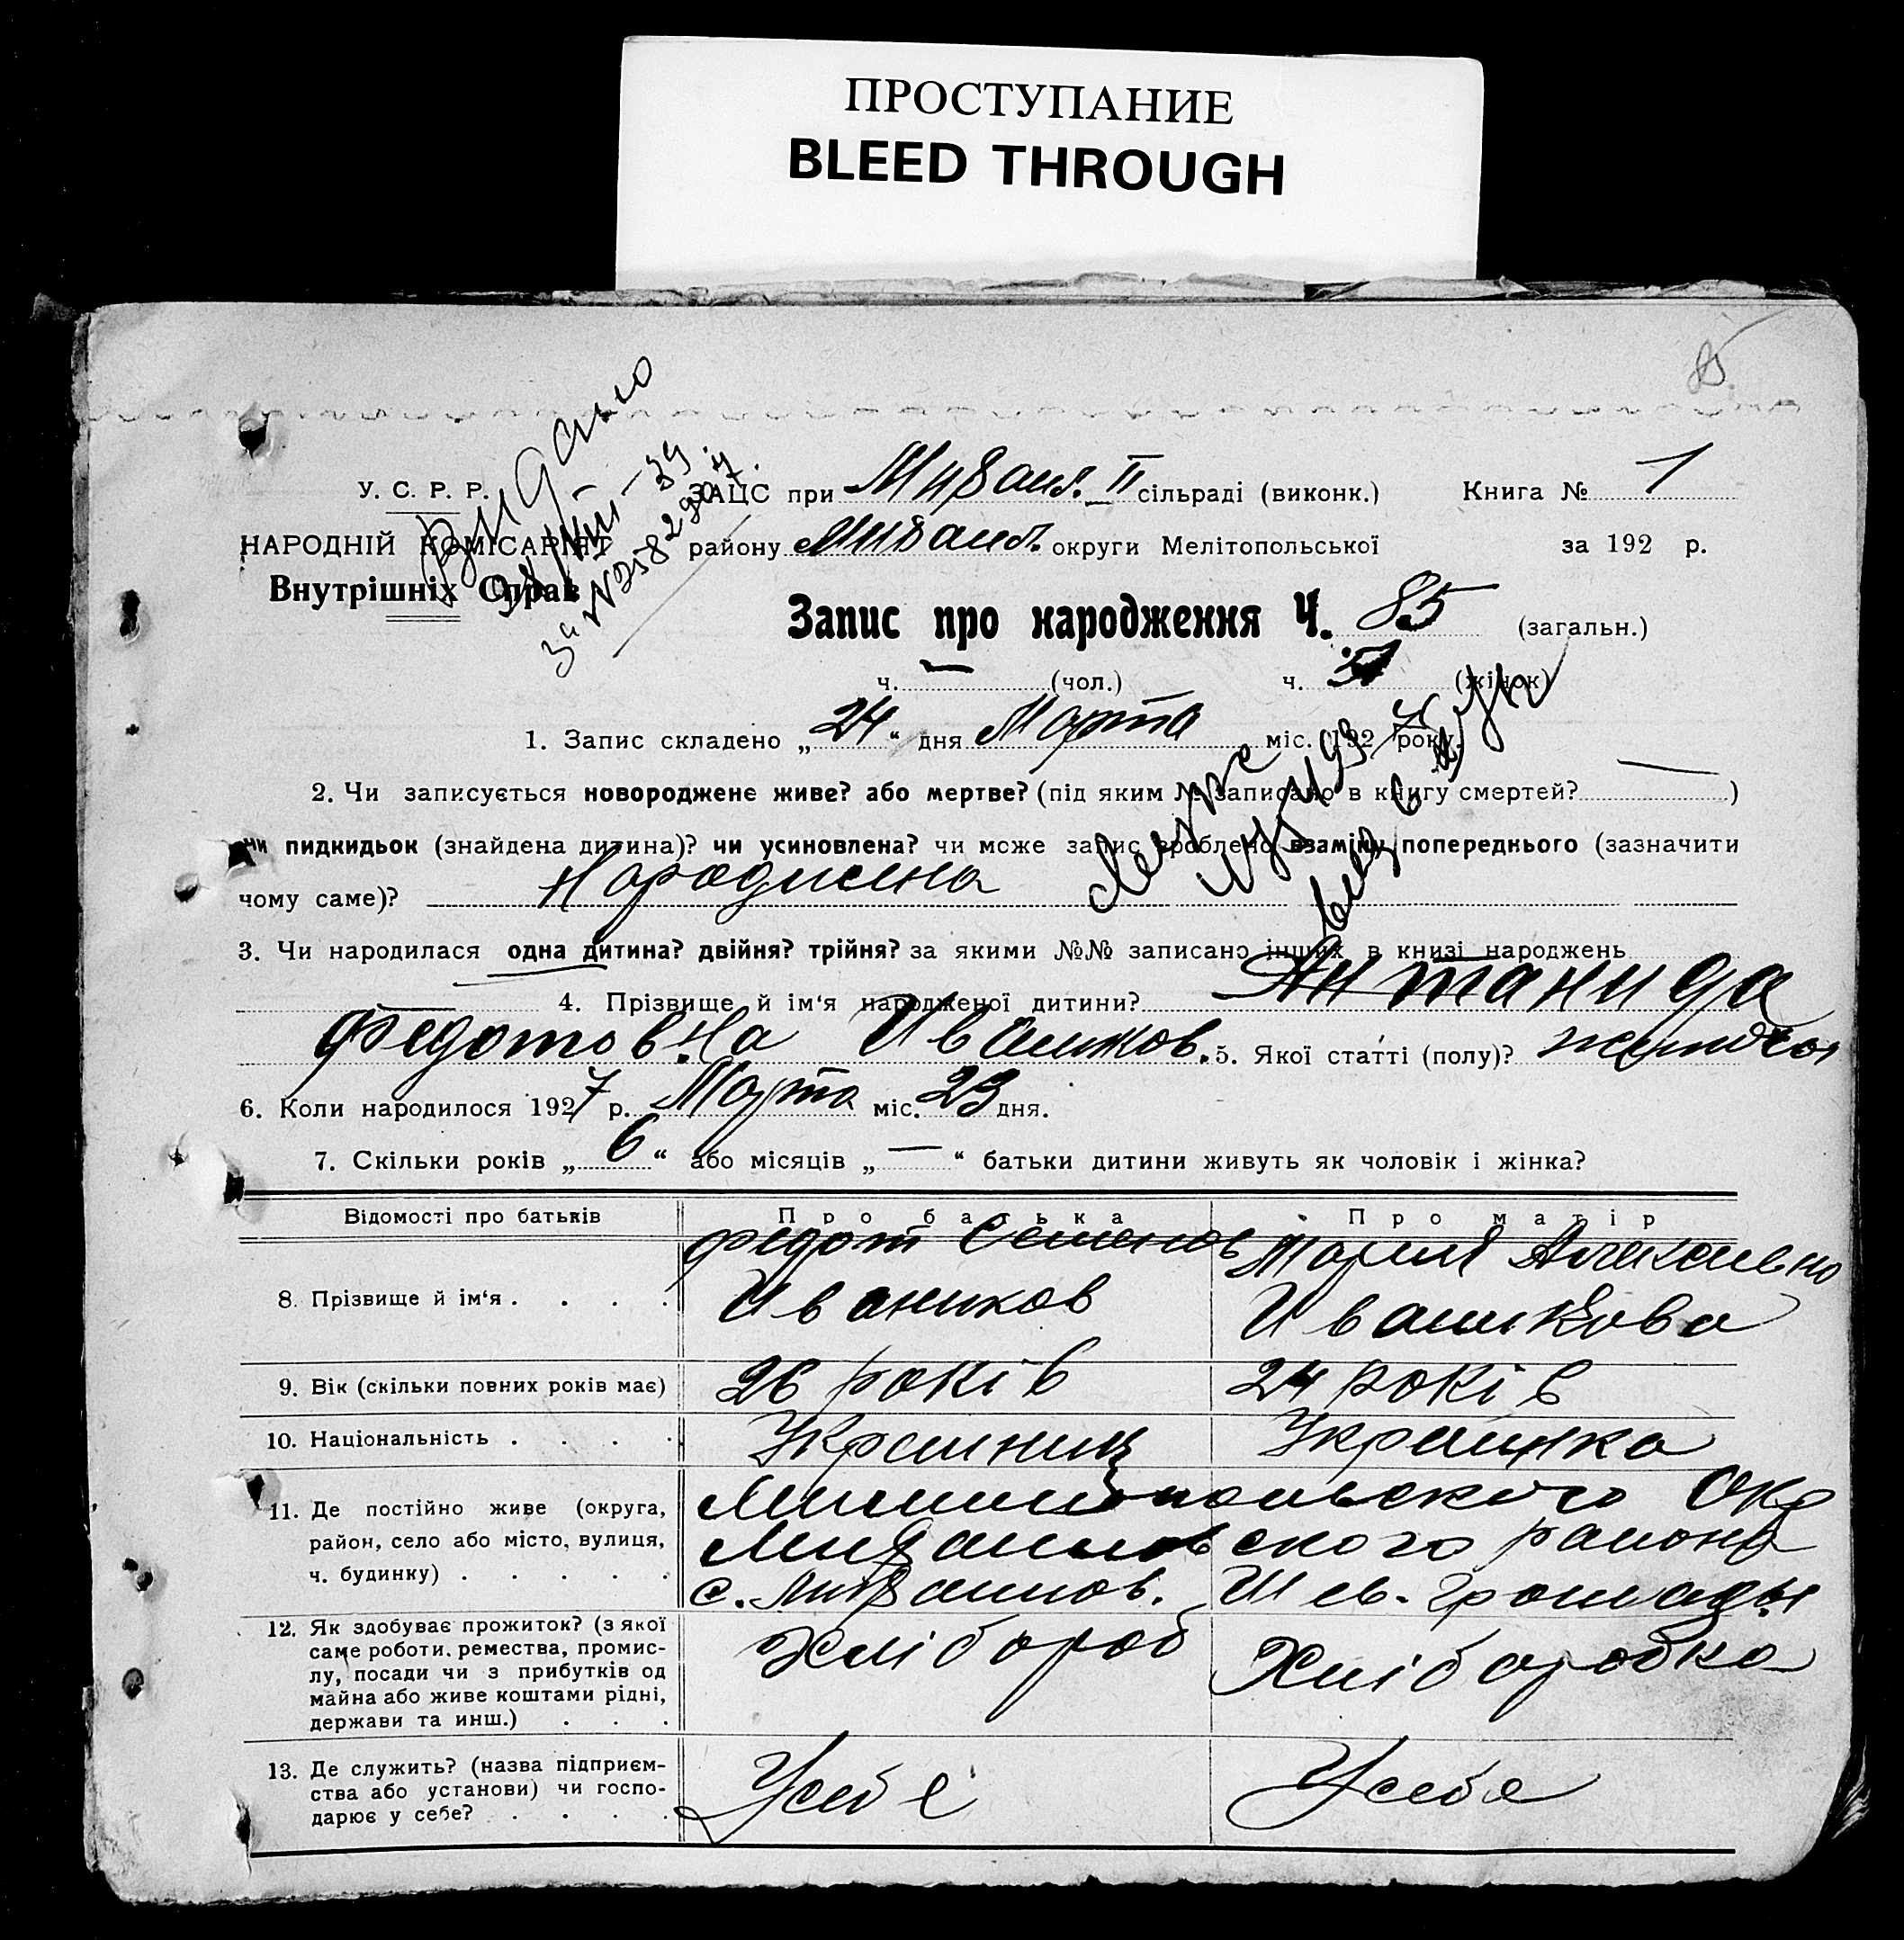 ПРОСТУПАНИЕ
BLEED THROUGH
85
Видано
за №2582
У. С. Р. Р.
ЗАЦС при Михайл. II сільраді (виконк.) Книга № 1
НАРОДНІЙ КОМІСАРІЯТ району Михайл. округи Мелітопольської за 192 р.
Внутрішніх Справ
Запис про народження Ч. 85 (загальн.)
ч. — (чол.) ч. (жінок)
1. Запис складено „ 24 “ дня Марта міс. 192 7 року.
2. Чи записується новороджене живе? або мертве? (під яким № записано в книгу смертей? — )
чи пидкидьок (знайдена дитина)? чи усиновлена? чи може запис зроблено взамінь попереднього (зазначити
чому саме)?
3. Чи народилася одна дитина? двійня? трійня? за якими №№ записано інших в книзі народжень
— 4. Прізвище й ім‘я народженої дитини? Антанида
Федотовна Ивашков. 5. Якої статті (полу)?
6. Коли народилося 1927 р. Марта міс. 23 дня.
7. Скільки років „ 6 “ або місяців „ — “ батьки дитини живуть як чоловік і жінка?
Відомості про батьків Про батька Про матір
8. Прізвище й ім'я . . . .
Федот Семенов
Ивашков
Мария Алексеевно
Ивашкова
9. Вік (скільки повних років має) 26 років 24 років
10. Національність . . . . Українец Українка
11. Де постійно живе (округа,
район, село або місто, вулиця,
ч. будинку) . . . . .
Мелитопольского Окр
Михайловского района
с. Михайлов. Шев. громады
12. Як здобуває прожиток? (з якої
саме роботи, ремества, промис-
лу, посади чи з прибутків од
майна або живе коштами рідні,
держави та инш.) . . .
Хлібороб Хліборобка
13. Де служить? (назва підприєм-
ства або установи) чи госпо-
дарює у себе? . . . .
У себе У себе